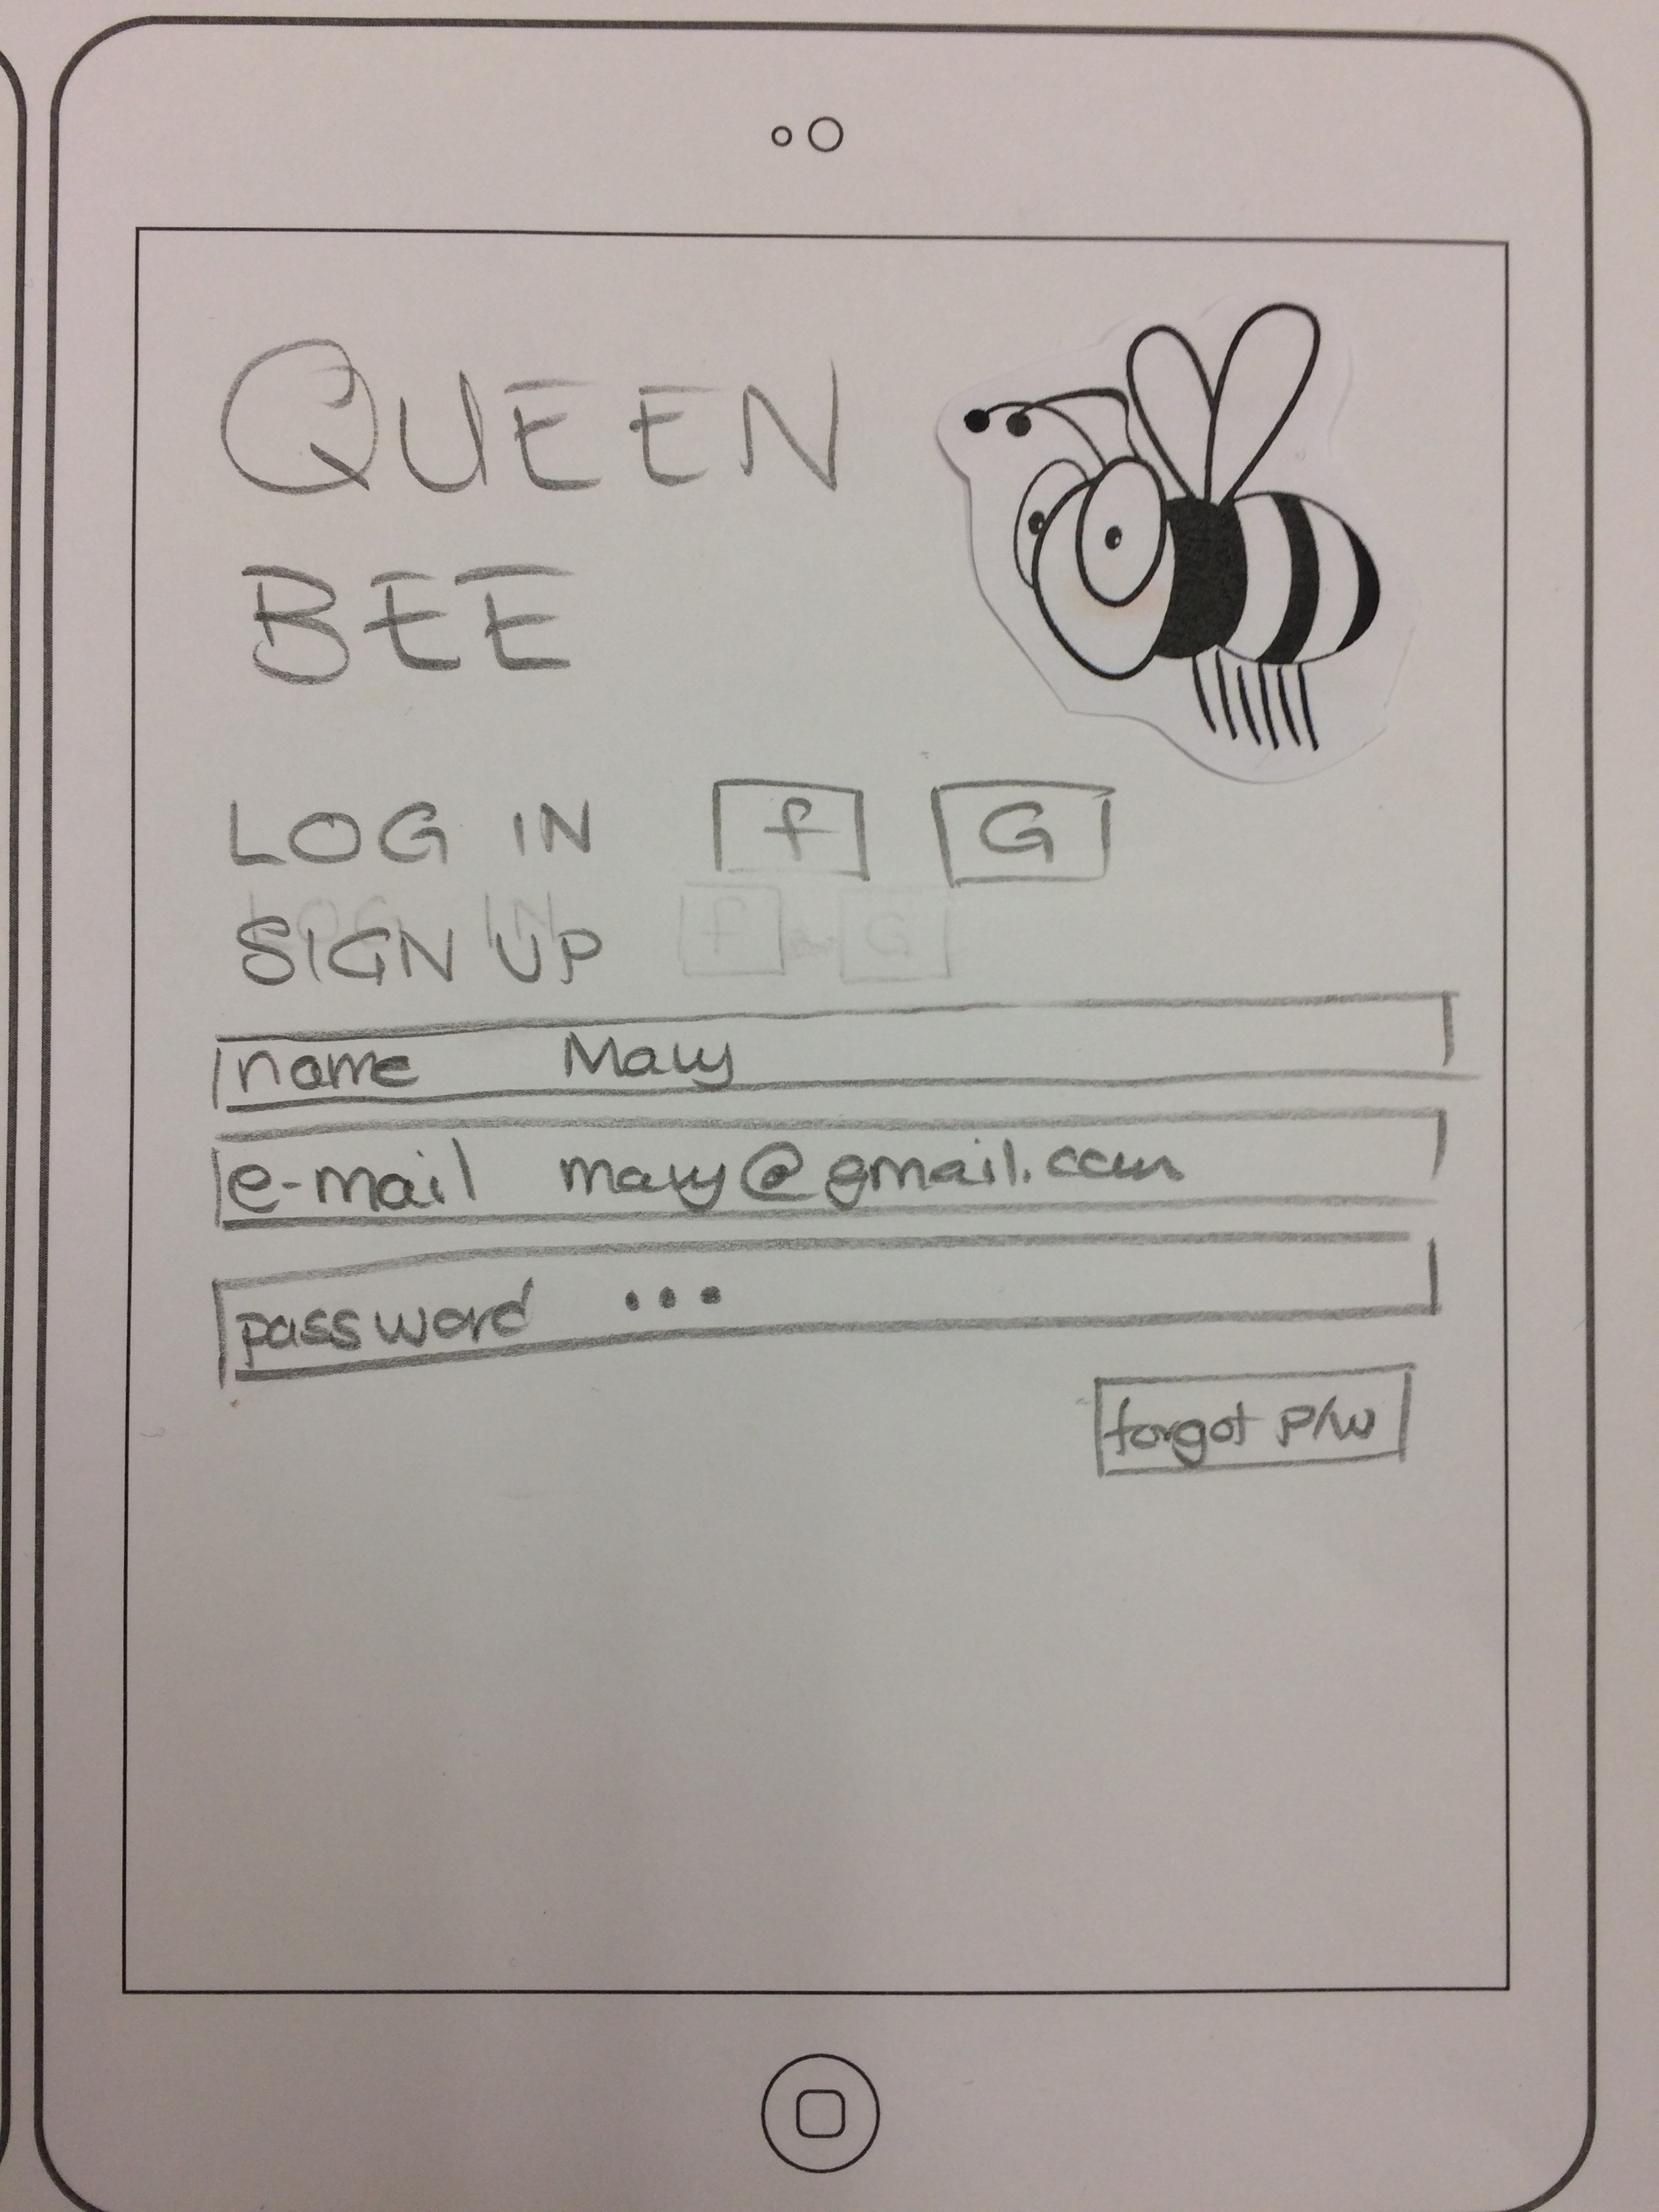 QUEEN
BEE
LOG IN f G
LOG IN f or G
SIGN UP
name Mary
e-mail mary@gmail.com
password •••
forgot P/W